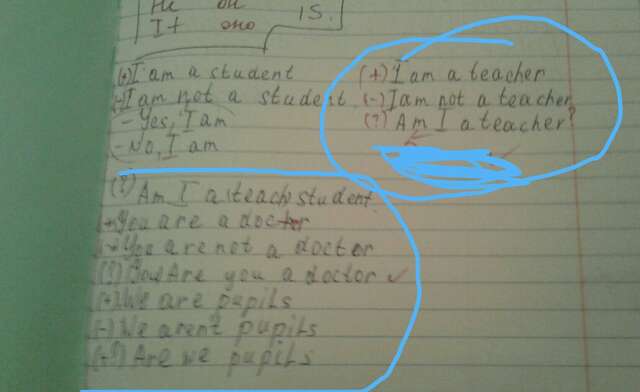 He он
It оно
is.
(+) I am a student
(-) I am not a student
- Yes, I am
- No, I am
(+) I am a teacher
(-) I am not a teacher
(?) Am I a teacher?
(?) Am I a teach student
(+) You are a doctor
(-) You are not a doctor
(?) You Are you a doctor
(+) We are pupils
(-) We arent pupils
(?) Are we pupils